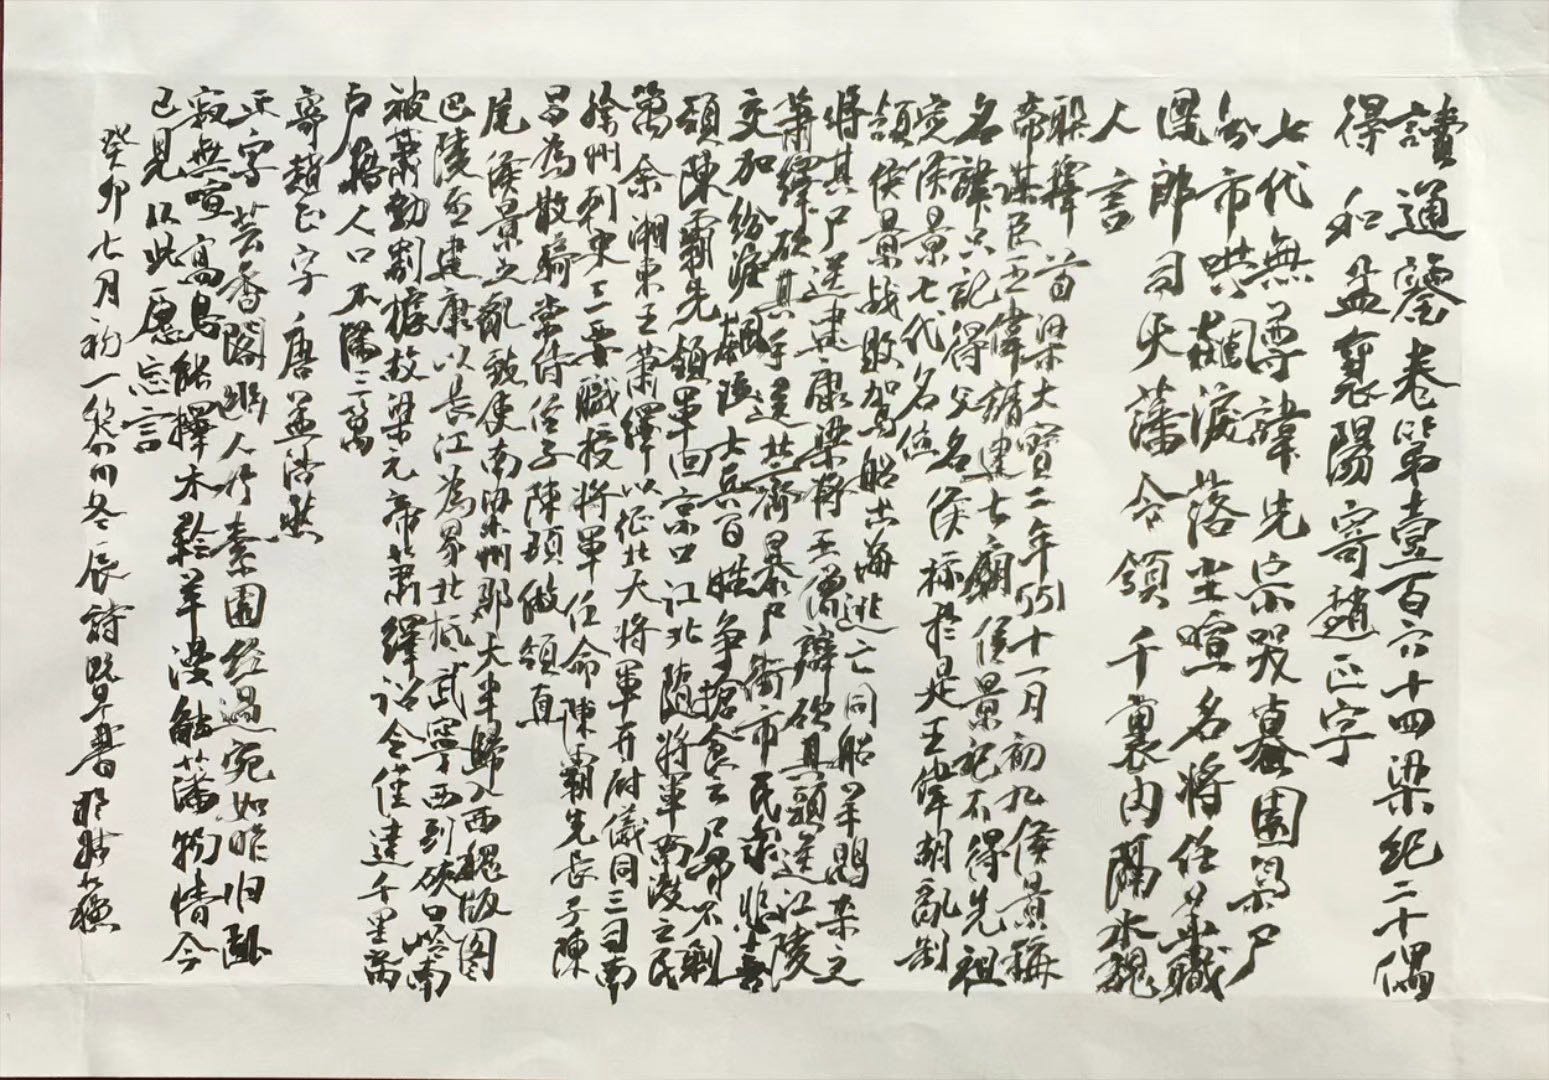 讀通鑒卷第壹百六十四梁紀二十偶
得 和孟襄陽寄趙正字
七代無尊諱先宗哭墓園梁尸
分市哄飆淚落尘喧名将任呈職
國郎司天藩令領千裏内隔水魏
人言
躲躍首梁大寶二年551十一月初九侯景稱
帝謀臣王偉請建七廟侯景記不得先祖
名諱只記得父名侯標於是王偉胡亂制
定侯景七代名位
領侯景战敗駕船出海逃亡同船羊鵾杀之
将其尸送建康梁将王僧辯砍其頭送江陵
蕭繹砍其手送北齊暴尸街市民众悲喜
交加紛淚飆洒士兵百姓争搶食之尸骨不剩
領陳霸先領軍回京口江北随将軍南渡之民
萬余湘東王蕭繹以征北大将軍开府儀同三司南
徐州刺史三要職授将軍任命陳霸先長子陳
昌為散騎常侍侄子陳頊做領直
尾侯景之亂致使南梁州郡大半歸入西魏版图
巴陵至建康以長江為界北抵武寧西到硖口岭南
被蕭勃割據故梁元帝蕭繹詔令僅達千里萬
户籍人口不滿三萬
寄趙正字 唐孟浩然
正字芸香閣幽人竹素園经過宛如昨旧卧
寂無喧高鳥能擇木羝羊漫触藩物情今
已見从此愿忘言
癸卯七月初一 冬辰詩既早書